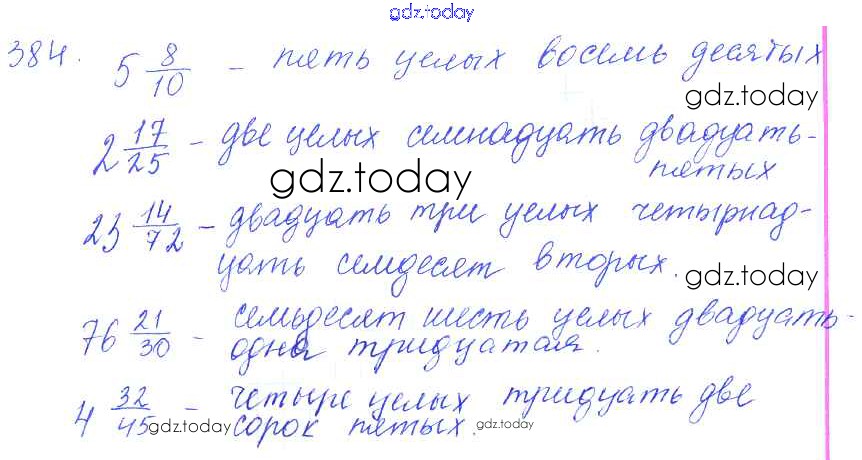 gdz.today
384. 5 8/10 - пять целых восемь десятых
gdz.today
2 17/25 - две целых семнадцать двадцать-
пятых
gdz.today
23 14/72 - двадцать три целых четырнад-
цать семдесят вторых.
gdz.today
76 21/30 - семьдесят шесть целых двадцать-
одна тридцатая.
4 32/45 - четыре целых тридцать две
gdz.today сорок пятых. gdz.today